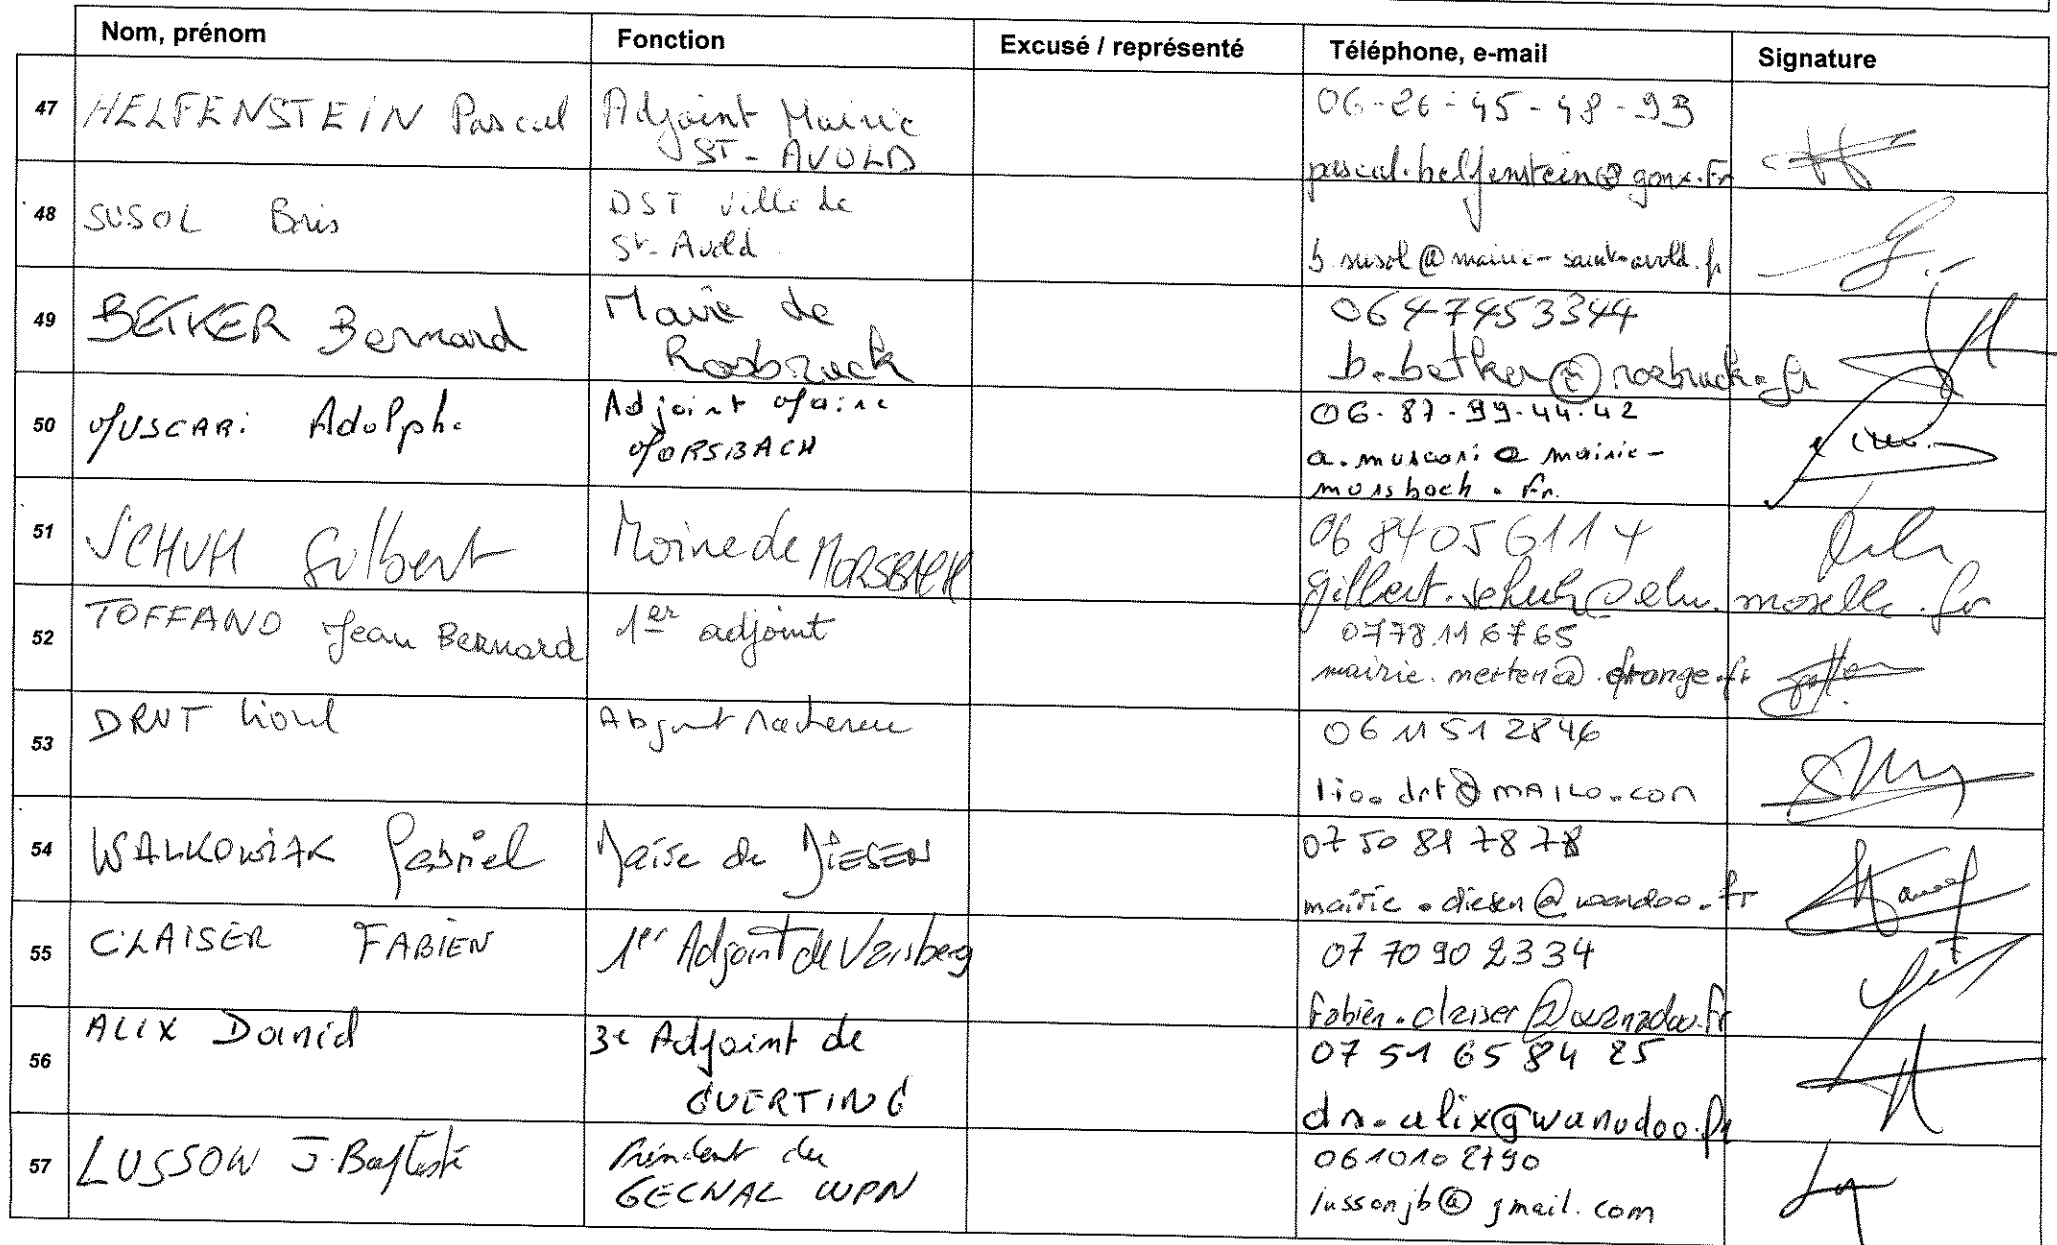 Nom, prénom Fonction Excusé / représenté Téléphone, e-mail Signature
47 HELFENSTEIN Pascal Adjoint Mairie 06-26-45-48-93
ST-AVOLD pascal.helfenstein@gmx.fr
48 SUSOL Boris DST Ville de
St-Avold b.susol@mairie-saint-avold.fr
49 BETKER Bernard Maire de 0647453344
Rosbruck b.betker@rosbruck.fr
50 MUSCARi Adolphe Adjoint Maire 06-87-99-44-42
MORSBACH a.muscari@mairie-
morsbach.fr.
51 SCHUH Gilbert Maire de MORSBACH 06 84 05 61 14
gilbert.schuh@elu.moselle.fr
52 TOFFANO Jean Bernard 1er adjoint 0778.116765
mairie.merten@.orange.fr
53 DRUT Lionel Adjoint 06 11 51 2846
lio.drt@MAILO.com
54 WALKOWIAK Gabriel Maire de DIESEN 07 50 81 78 78
mairie.diesen@wanadoo.fr
55 CLAISER FABIEN 1er Adjoint de Varsberg 07 70 90 2334
fabien.claiser@wanadoo.fr
56 ALIX Daniel 3e Adjoint de 07 51 65 84 25
GUERTING dn.alix@wanadoo.fr
57 LUSSON J.Baptiste Président du 0610102790
GECNAL WPN lussonjb@gmail.com